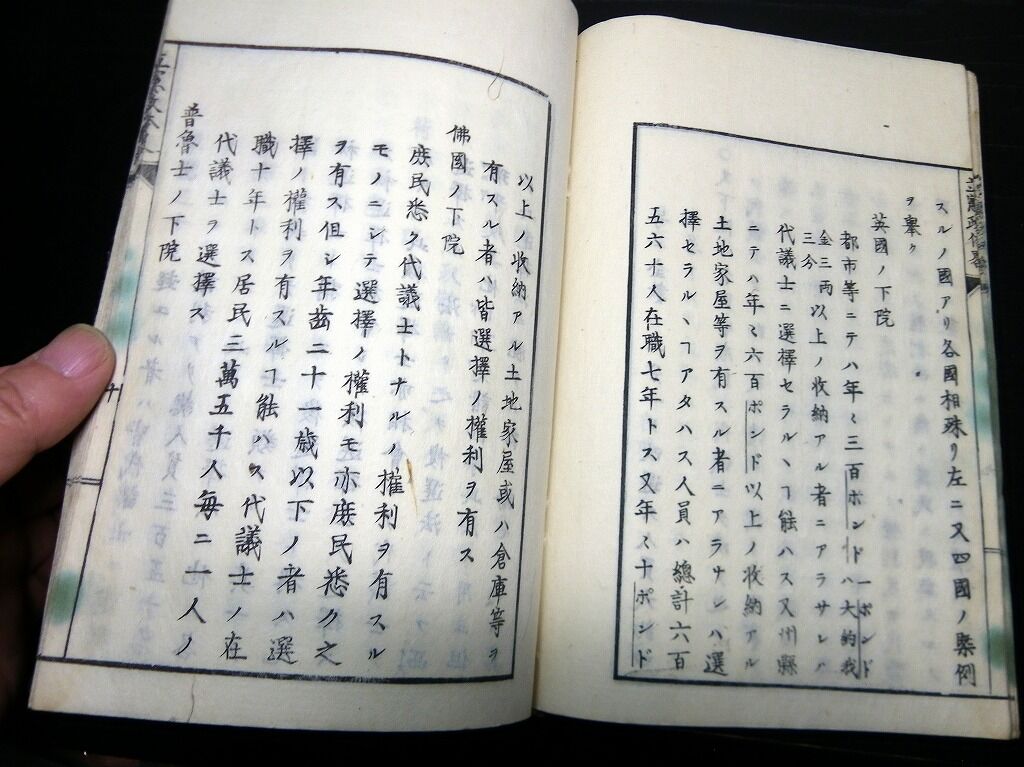 スルノ國アリ各國相殊リ左ニ又四國ノ槩例
ヲ擧ク
英國ノ下院
都市等ニテハ年々三百ポンド一ポンドハ大約我
金三両三分以上ノ收納アル者ニアラサレハ
代議士ニ選擇セラルヽヿ能ハス又州縣
ニテハ年々六百ポンド以上ノ收納アル
土地家屋等ヲ有スル者ニアラサレハ選
擇セラルヽヿアタハス人員ハ總計六百
五六十人在職七年トス又年々十ポンド
以上ノ收納アル土地家屋或ハ倉庫等ヲ
有スル者ハ皆選擇ノ權利ヲ有ス
佛國ノ下院
庶民悉ク代議士トナルノ權利ヲ有スル
モノニシテ選擇ノ權利モ亦庶民悉ク之
ヲ有ス但シ年齒二十一歳以下ノ者ハ選
擇ノ權利ヲ有スルヿ能ハス代議士ノ在
職十年トス居民三萬五千人每ニ一人ノ
代議士ヲ選擇ス
普魯士ノ下院
十